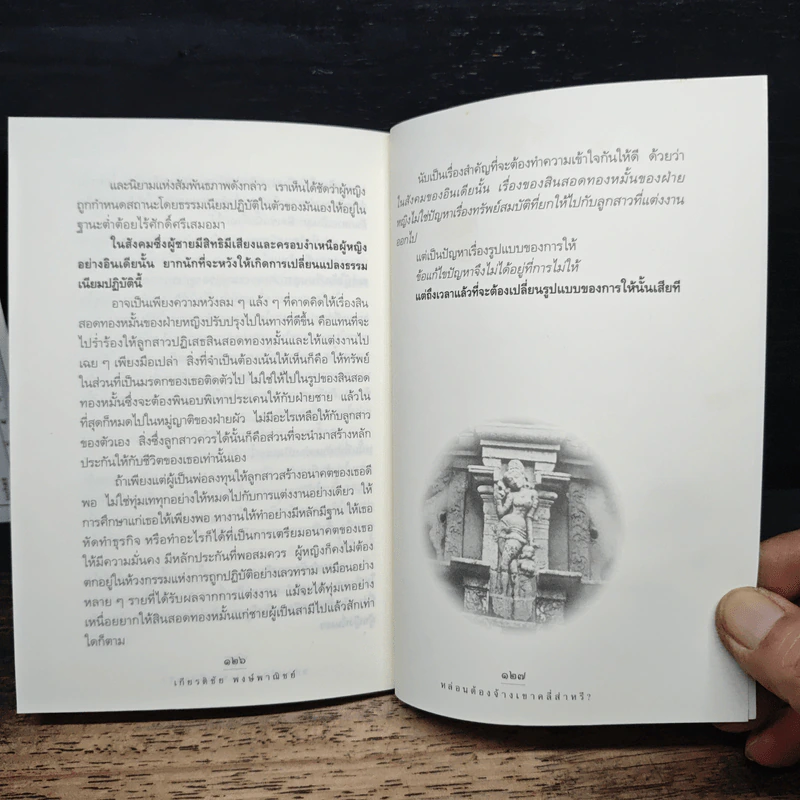 และนิยามแห่งสัมพันธภาพดังกล่าว เราเห็นได้ชัดว่าผู้หญิง
ถูกกำหนดสถานะโดยธรรมเนียมปฏิบัติในตัวของมันเองให้อยู่ใน
ฐานะต่ำต้อยไร้ศักดิ์ศรีเสมอมา
ในสังคมซึ่งผู้ชายมีสิทธิมีเสียงและครอบงำเหนือผู้หญิง
อย่างอินเดียนั้น ยากนักที่จะหวังให้เกิดการเปลี่ยนแปลงธรรม
เนียมปฏิบัตินี้
อาจเป็นเพียงความหวังลม ๆ แล้ง ๆ ที่คาดคิดให้เรื่องสิน
สอดทองหมั้นของฝ่ายหญิงปรับปรุงไปในทางที่ดีขึ้น คือแทนที่จะ
ไปร่ำร้องให้ลูกสาวปฏิเสธสินสอดทองหมั้นและให้แต่งงานไป
เฉย ๆ เพียงมือเปล่า สิ่งที่จำเป็นต้องเน้นให้เห็นก็คือ ให้ทรัพย์
ในส่วนที่เป็นมรดกของเธอติดตัวไป ไม่ใช่ให้ไปในรูปของสินสอด
ทองหมั้นซึ่งจะต้องพินอบพิเทาประเคนให้กับฝ่ายชาย แล้วใน
ที่สุดก็หมดไปในหมู่ญาติของฝ่ายผัว ไม่มีอะไรเหลือให้กับลูกสาว
ของตัวเอง สิ่งซึ่งลูกสาวควรได้นั้นก็คือส่วนที่จะนำมาสร้างหลัก
ประกันให้กับชีวิตของเธอเท่านั้นเอง
ถ้าเพียงแต่ผู้เป็นพ่อลงทุนให้ลูกสาวสร้างอนาคตของเธอดี
พอ ไม่ใช่ทุ่มเททุกอย่างให้หมดไปกับการแต่งงานอย่างเดียว ให้
การศึกษาแก่เธอให้เพียงพอ หางานให้ทำอย่างมีหลักมีฐาน ให้เธอ
หัดทำธุรกิจ หรือทำอะไรก็ได้ที่เป็นการเตรียมอนาคตของเธอ
ให้มีความมั่นคง มีหลักประกันที่พอสมควร ผู้หญิงก็คงไม่ต้อง
ตกอยู่ในห้วงกรรมแห่งการถูกปฏิบัติอย่างเลวทราม เหมือนอย่าง
หลาย ๆ รายที่ได้รับผลจากการแต่งงาน แม้จะได้ทุ่มเทอย่าง
เหนื่อยยากให้สินสอดทองหมั้นแก่ชายผู้เป็นสามีไปแล้วสักเท่า
ใดก็ตาม
๑๒๖
เกียรติชัย พงษ์พาณิชย์
นับเป็นเรื่องสำคัญที่จะต้องทำความเข้าใจกันให้ดี ด้วยว่า
ในสังคมของอินเดียนั้น เรื่องของสินสอดทองหมั้นของฝ่าย
หญิงไม่ใช่ปัญหาเรื่องทรัพย์สมบัติที่ยกให้ไปกับลูกสาวที่แต่งงาน
ออกไป
แต่เป็นปัญหาเรื่องรูปแบบของการให้
ข้อแก้ไขปัญหาจึงไม่ได้อยู่ที่การไม่ให้
แต่ถึงเวลาแล้วที่จะต้องเปลี่ยนรูปแบบของการให้นั้นเสียที
๑๒๗
หล่อนต้องจ้างเขาคลี่ส่าหรี?